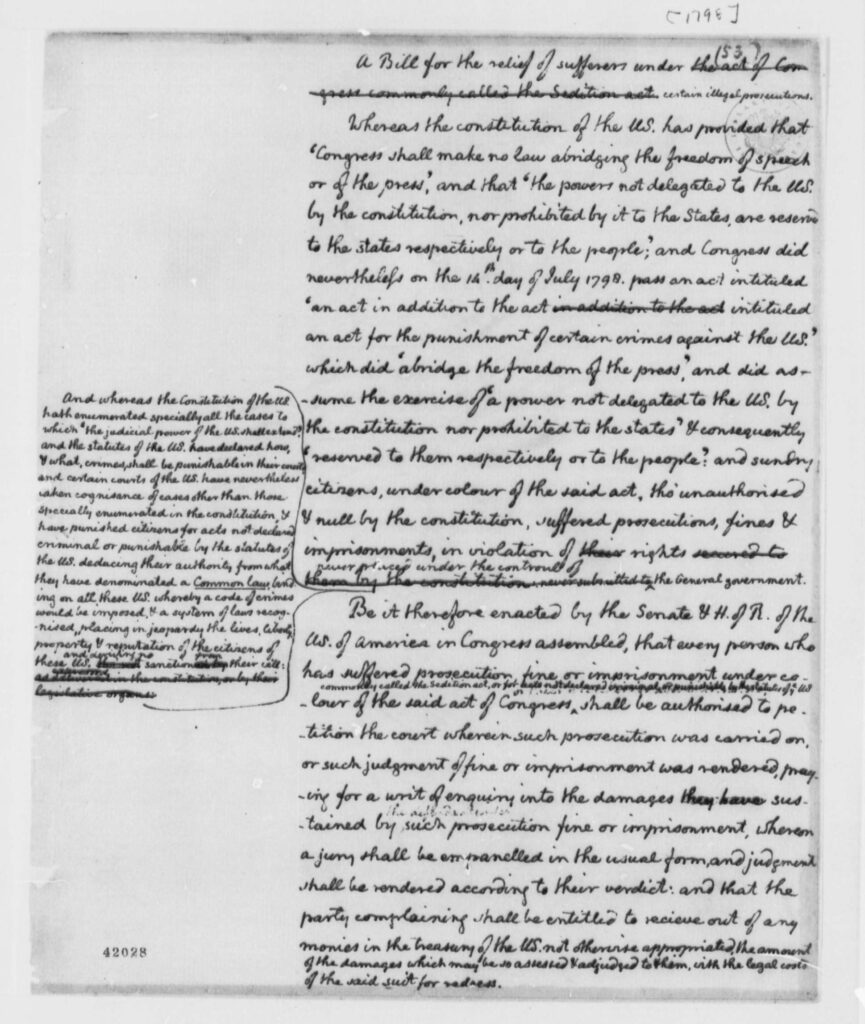 [1798]
(53)
A Bill for the relief of sufferers under the act of Con
gress commonly called the Sedition act. certain illegal prosecutions.
Whereas the constitution of the US. has provided that
'Congress shall make no law abridging the freedom of speech
or of the press', and that 'the powers not delegated to the US.
by the constitution, nor prohibited by it to the States, are reserved
to the states respectively or to the people'; and Congress did
nevertheless on the 14th. day of July 1798. pass an act intituled
'an act in addition to the act in addition to the act intituled
an act for the punishment of certain crimes against the US.'
which did 'abridge the freedom of the press', and did as-
-sume the exercise of 'a power not delegated to the US. by
the constitution nor prohibited to the states' & consequently
'reserved to them respectively or to the people': and sundry
citizens, under colour of the said act, tho' unauthorised
& null by the constitution, suffered prosecutions, fines &
imprisonments, in violation of their rights secured to
under the controul of
them by the constitution, never submitted to the General government.
And whereas the Constitution of the US.
hath enumerated specially all the cases to
which 'the judicial power of the US. shall extend',
and the statutes of the US. have declared how,
& what, crimes, shall be punishable in their courts
and certain courts of the US. have nevertheless
taken cognisance of cases other than those
specially enumerated in the constitution, &
have punished citizens for acts not declared
criminal or punishable by the statutes of
the US. deducing their authority from what
they have denominated a Common law, bind
ing on all these US. whereby a code of crimes
would be imposed, & a system of laws recog-
-nised, placing in jeopardy the lives, liberty,
property & reputation of the citizens of
these US. sanctioned their
in the constitution, or by their
legislative organs:
Be it therefore enacted by the Senate & H. of R. of the
US. of America in Congress assembled, that every person who
has suffered prosecution, fine or imprisonment under co-
commonly called the Sedition act, or for acts not declared criminal or punishable by the statutes of the US
-lour of the said act of Congress, shall be authorised to pe-
-tition the court wherein such prosecution was carried on,
or such judgment of fine or imprisonment was rendered, pray-
-ing for a writ of enquiry into the damages they have sus-
-tained by such prosecution fine or imprisonment, whereon
a jury shall be empanelled in the usual form, and judgment
shall be rendered according to their verdict: and that the
party complaining shall be entitled to recieve out of any
monies in the treasury of the US. not otherwise appropriated, the amount
of the damages which may be so assessed & adjudged to them, with the legal costs
of the said suit for redress.
42028